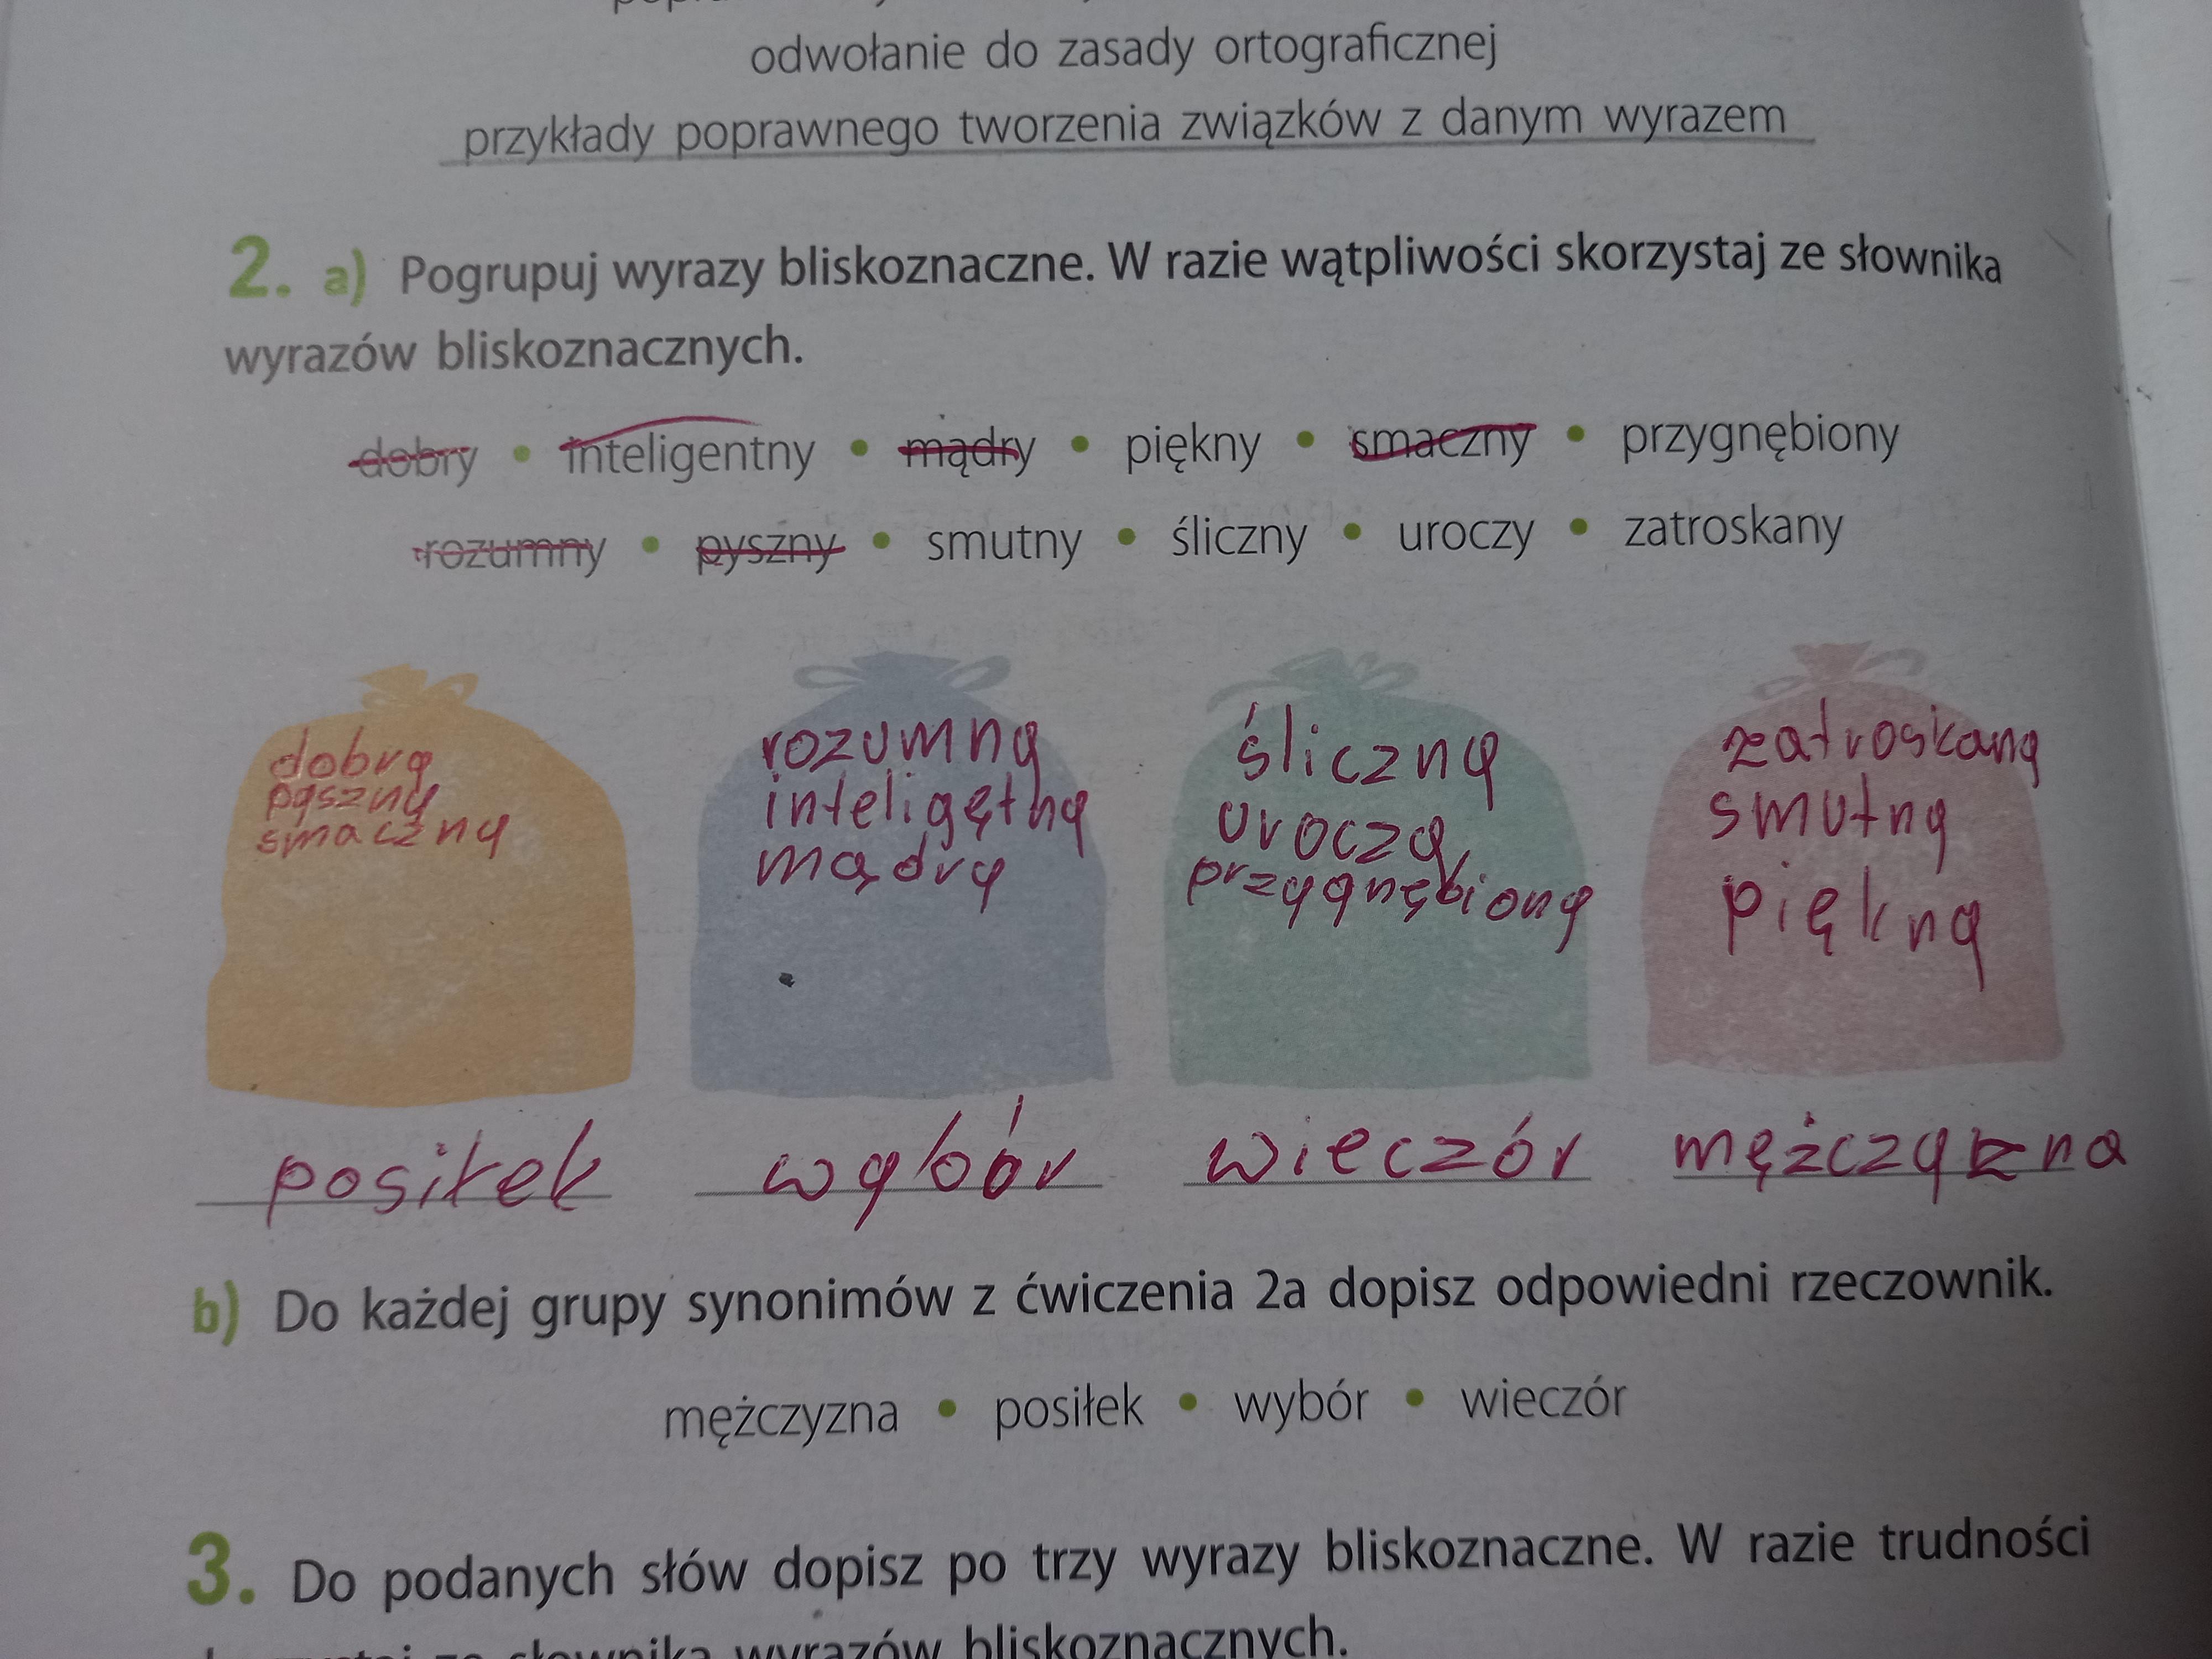 odwołanie do zasady ortograficznej
przykłady poprawnego tworzenia związków z danym wyrazem
2. a) Pogrupuj wyrazy bliskoznaczne. W razie wątpliwości skorzystaj ze słownika
wyrazów bliskoznacznych.
dobry • inteligentny • mądry • piękny • smaczny • przygnębiony
rozumny • pyszny • smutny • śliczny • uroczy • zatroskany
dobry
pyszny
smaczny
rozumny
inteligętny
mądry
śliczny
uroczy
przygnębiony
zatroskany
smutny
piękny
posiłek wybór wieczór mężczyzna
b) Do każdej grupy synonimów z ćwiczenia 2a dopisz odpowiedni rzeczownik.
mężczyzna • posiłek • wybór • wieczór
3. Do podanych słów dopisz po trzy wyrazy bliskoznaczne. W razie trudności
ze słownika wyrazów bliskoznacznych.